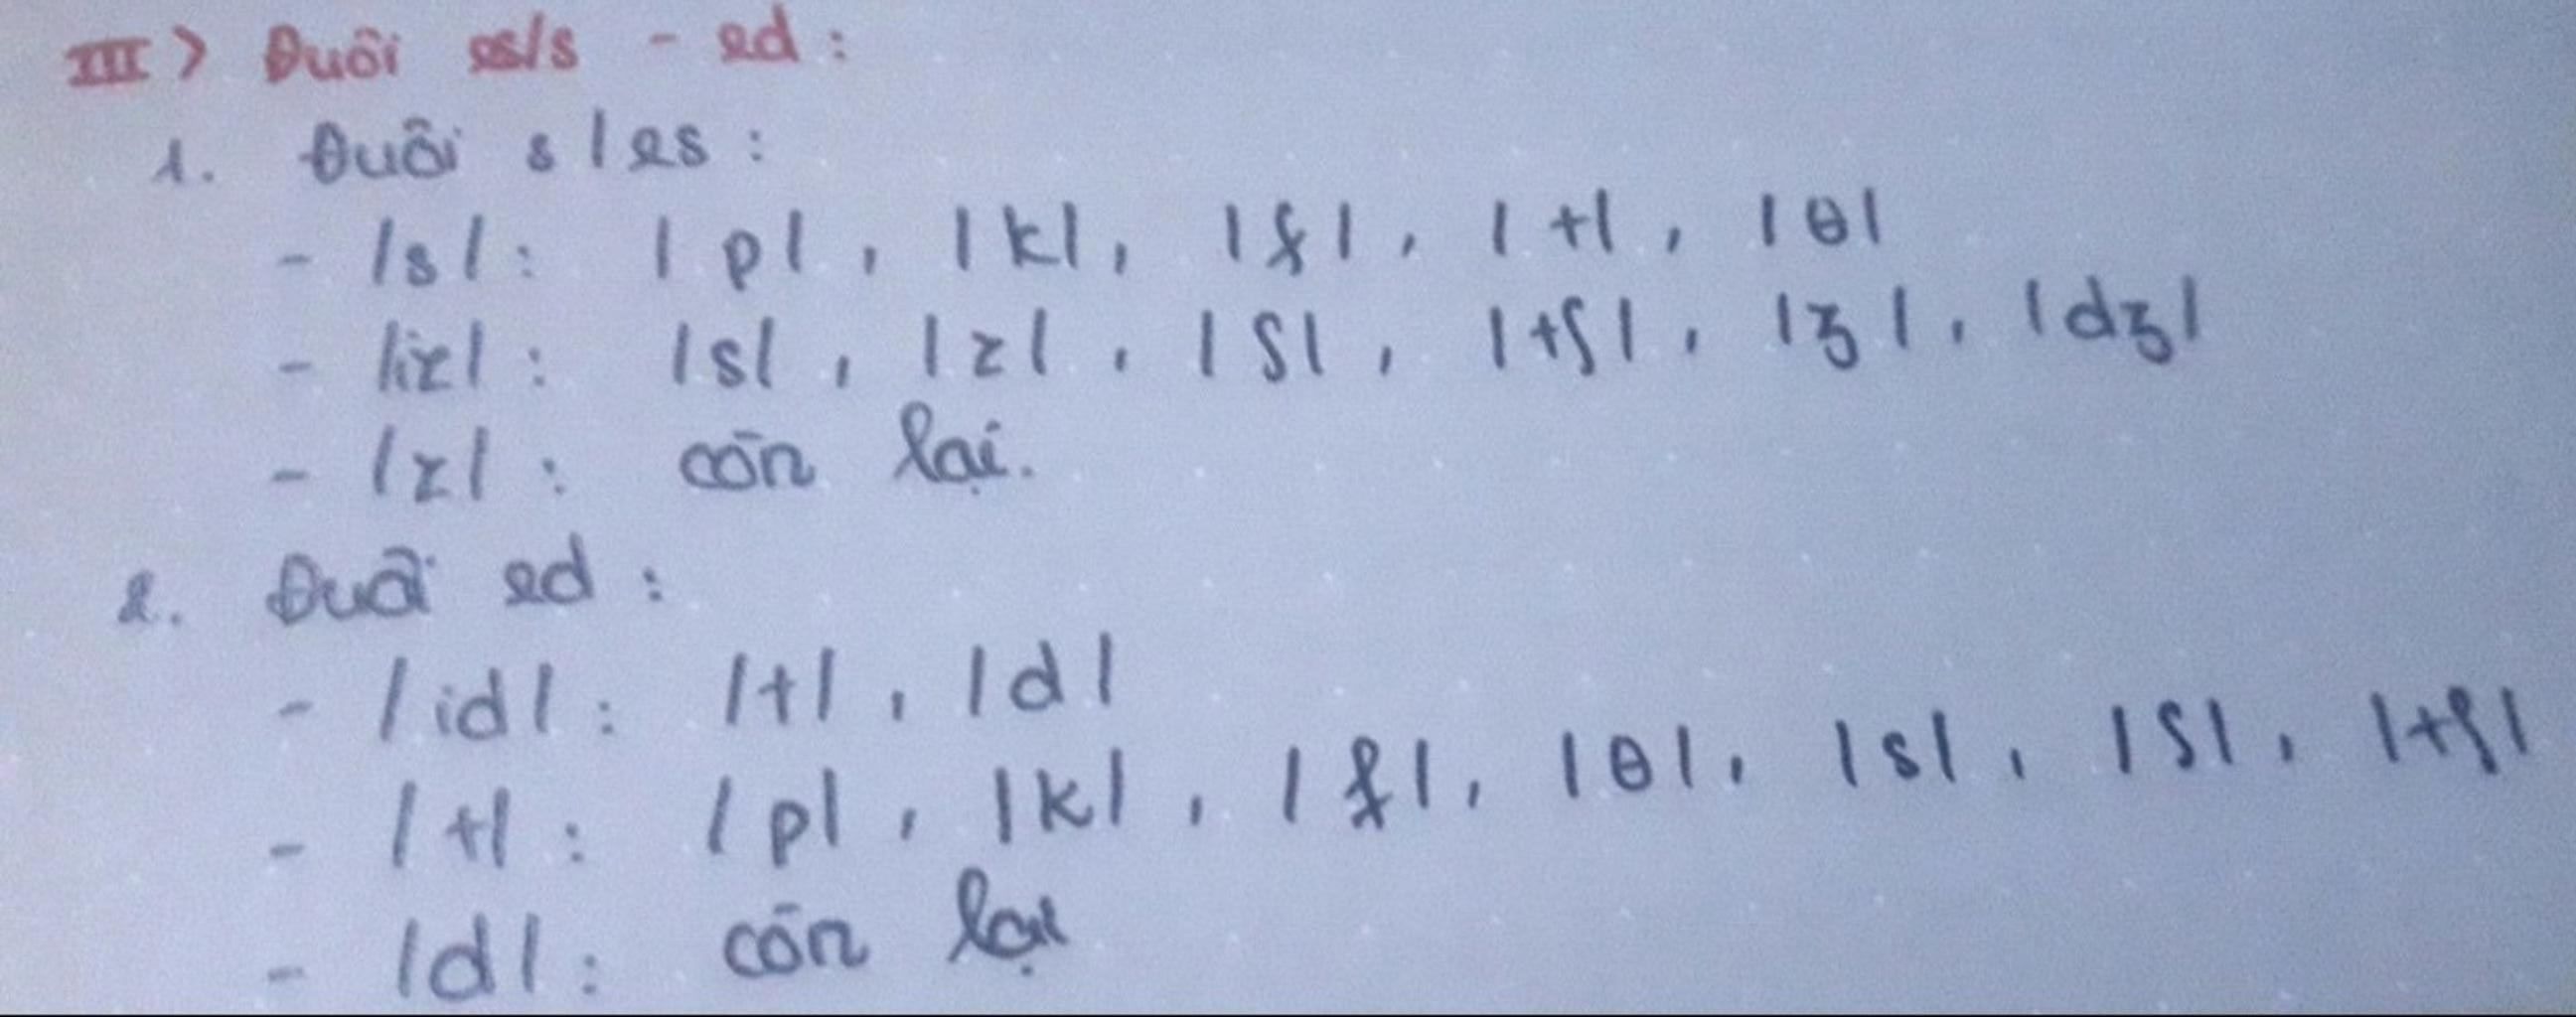 III> Đuôi es/s - ed :
1. Đuôi s / es :
- /s/ : /p/ , /k/ , /f/ , /t/ , /θ/
- /iz/ : /s/ , /z/ , /ʃ/ , /tʃ/ , /ʒ/ , /dʒ/
- /z/ : còn lại.
2. Đuôi ed :
- /id/ : /t/ , /d/
- /t/ : /p/ , /k/ , /f/ , /θ/ , /s/ , /ʃ/ , /tʃ/
- /d/ : còn lại